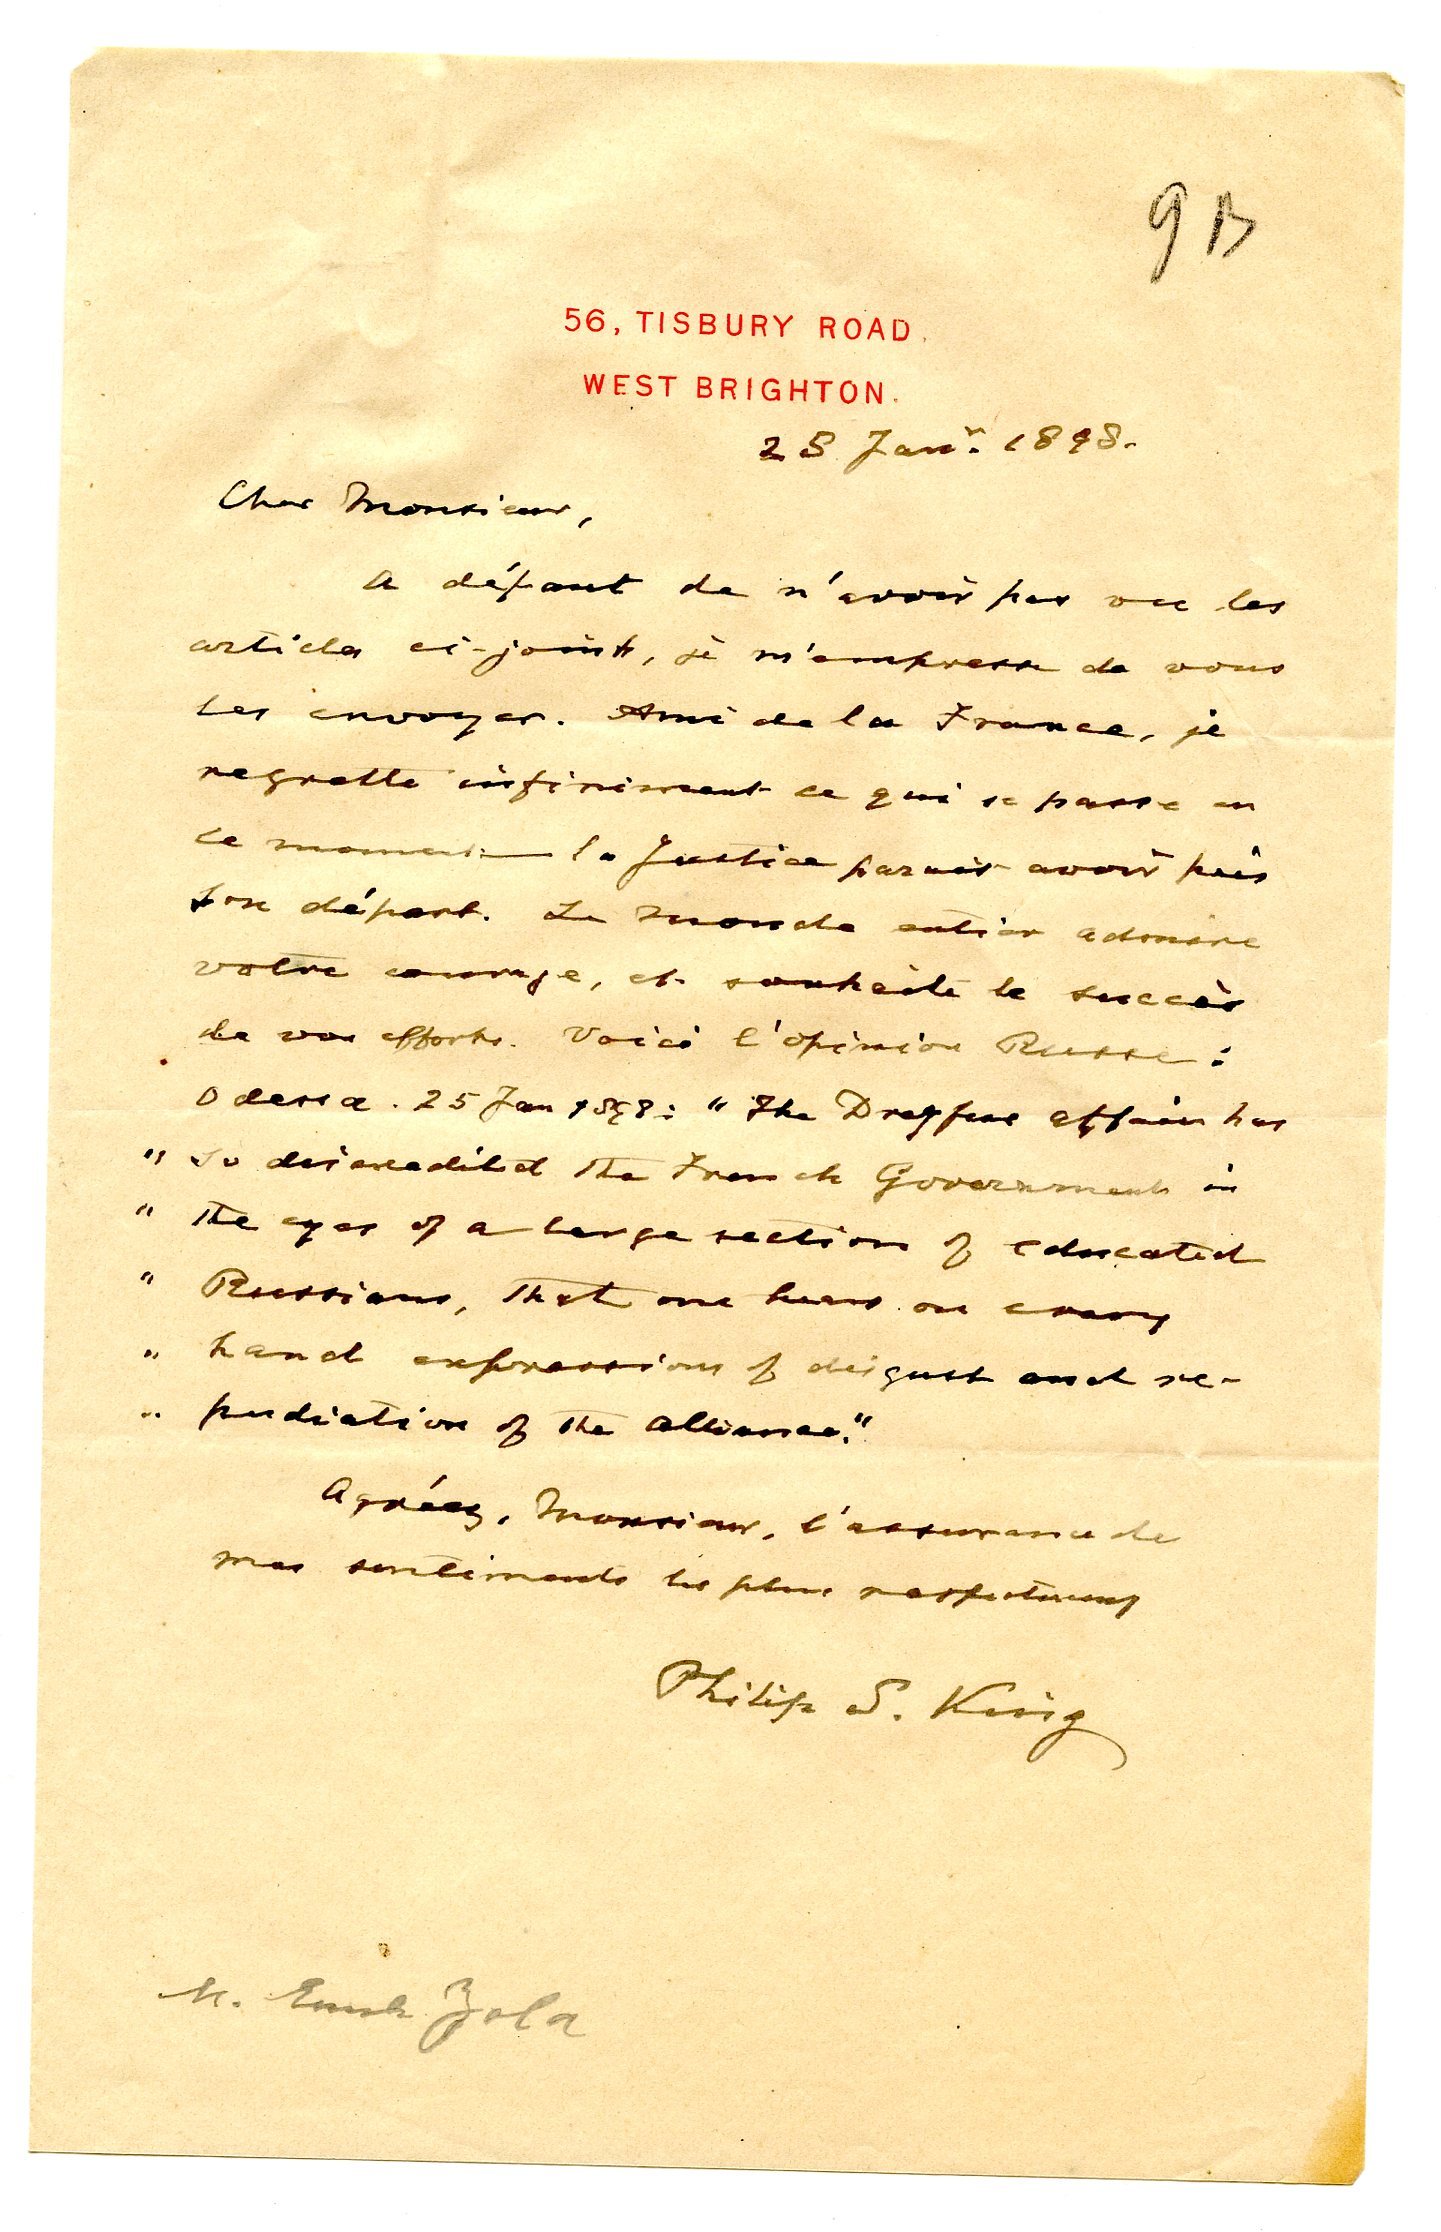 9B
56, TISBURY ROAD.
WEST BRIGHTON.
28 Janr. 1898.
Cher Monsieur,
A défaut de n'avoir pas vu les
articles ci-joints, je m'empresse de vous
les envoyer. Ami de la France, je
regrette infiniment ce qui se passe en
ce moment — la Justice parait avoir pris
son départ. Le monde entier admire
votre courage, et souhaite le succès
de vos efforts. Voici l'opinion Russe:
Odessa. 25 Jan 1898: "The Dreyfus affair has
" so discredited the French Government in
" the eyes of a large section of educated
" Russians, that one hears on every
" hand expressions of disgust and re-
" pudiation of the alliance."
Agréez, Monsieur, l'assurance de
mes sentiments les plus respectueux
Philip S. King
M. Emile Zola